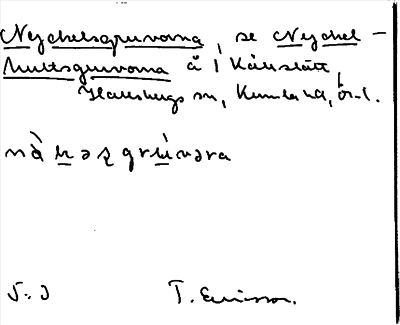 Nyckelsgruvorna, se Nyckel-
hultsgruvorna å i Kårstatt
Hallsbergs sn, Kumla hd, Ör. l.
nà k ə ş gru̇vəra
5:3 T. Ericsson.